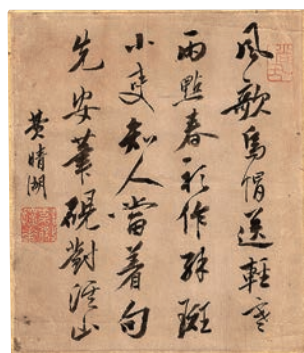 風欹烏帽送輕寒
雨點春衫作碎斑
小吏知人當着句
先安筆硯對溪山
黄晴湖